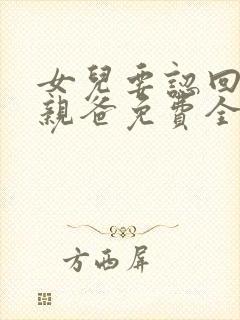 女兒要認回
親爸免費全
方西屏